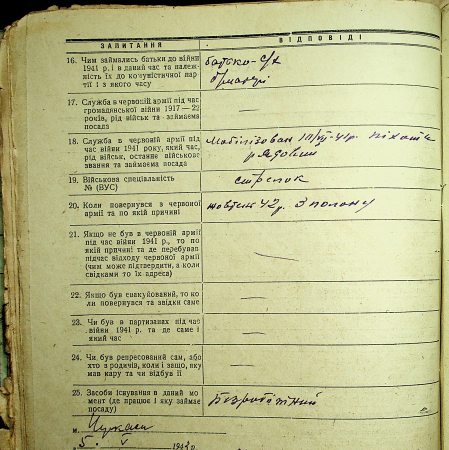 ЗАПИТАННЯ
ВІДПОВІДІ
16. Чим займались батьки до війни
1941 р. і в даний час та належ-
ність їх до комуністичної пар-
тії і з якого часу
батько - с/х
17. Служба в червоній армії під час
громадянської війни 1917—22
років, рід військ та займаєма
посада
—
18. Служба в червоній армії під
час війни 1941 року, який час,
рід військ, останнє військове
звання та займаєма посада
Мобілізован 10/VII-41р. піхота
рядовий
19. Військова спеціальність
№ (ВУС)
стрелок
20. Коли повернувся з червоної
армії та по якій причині
жовтень 42 р. З полону
21. Якщо не був в червоній армії
під час війни 1941 р., то по
якій причині та де перебував
підчас відходу червоної армії
(чим може підтвердити, а коли
свідками то їх адреса)
—
22. Якщо був евакуйований, то ко-
ли повернувся та звідки саме
—
23. Чи був в партизанах під час
війни 1941 р. та де саме і
який час
—
24. Чи був репресований сам, або
хто з родичів, коли і защо, яку
мав кару та чи відбув її
—
25. Засоби існування в даний мо-
мент (де працює і яку займає
посаду)
Безробітний
м. Черкаси
5. V